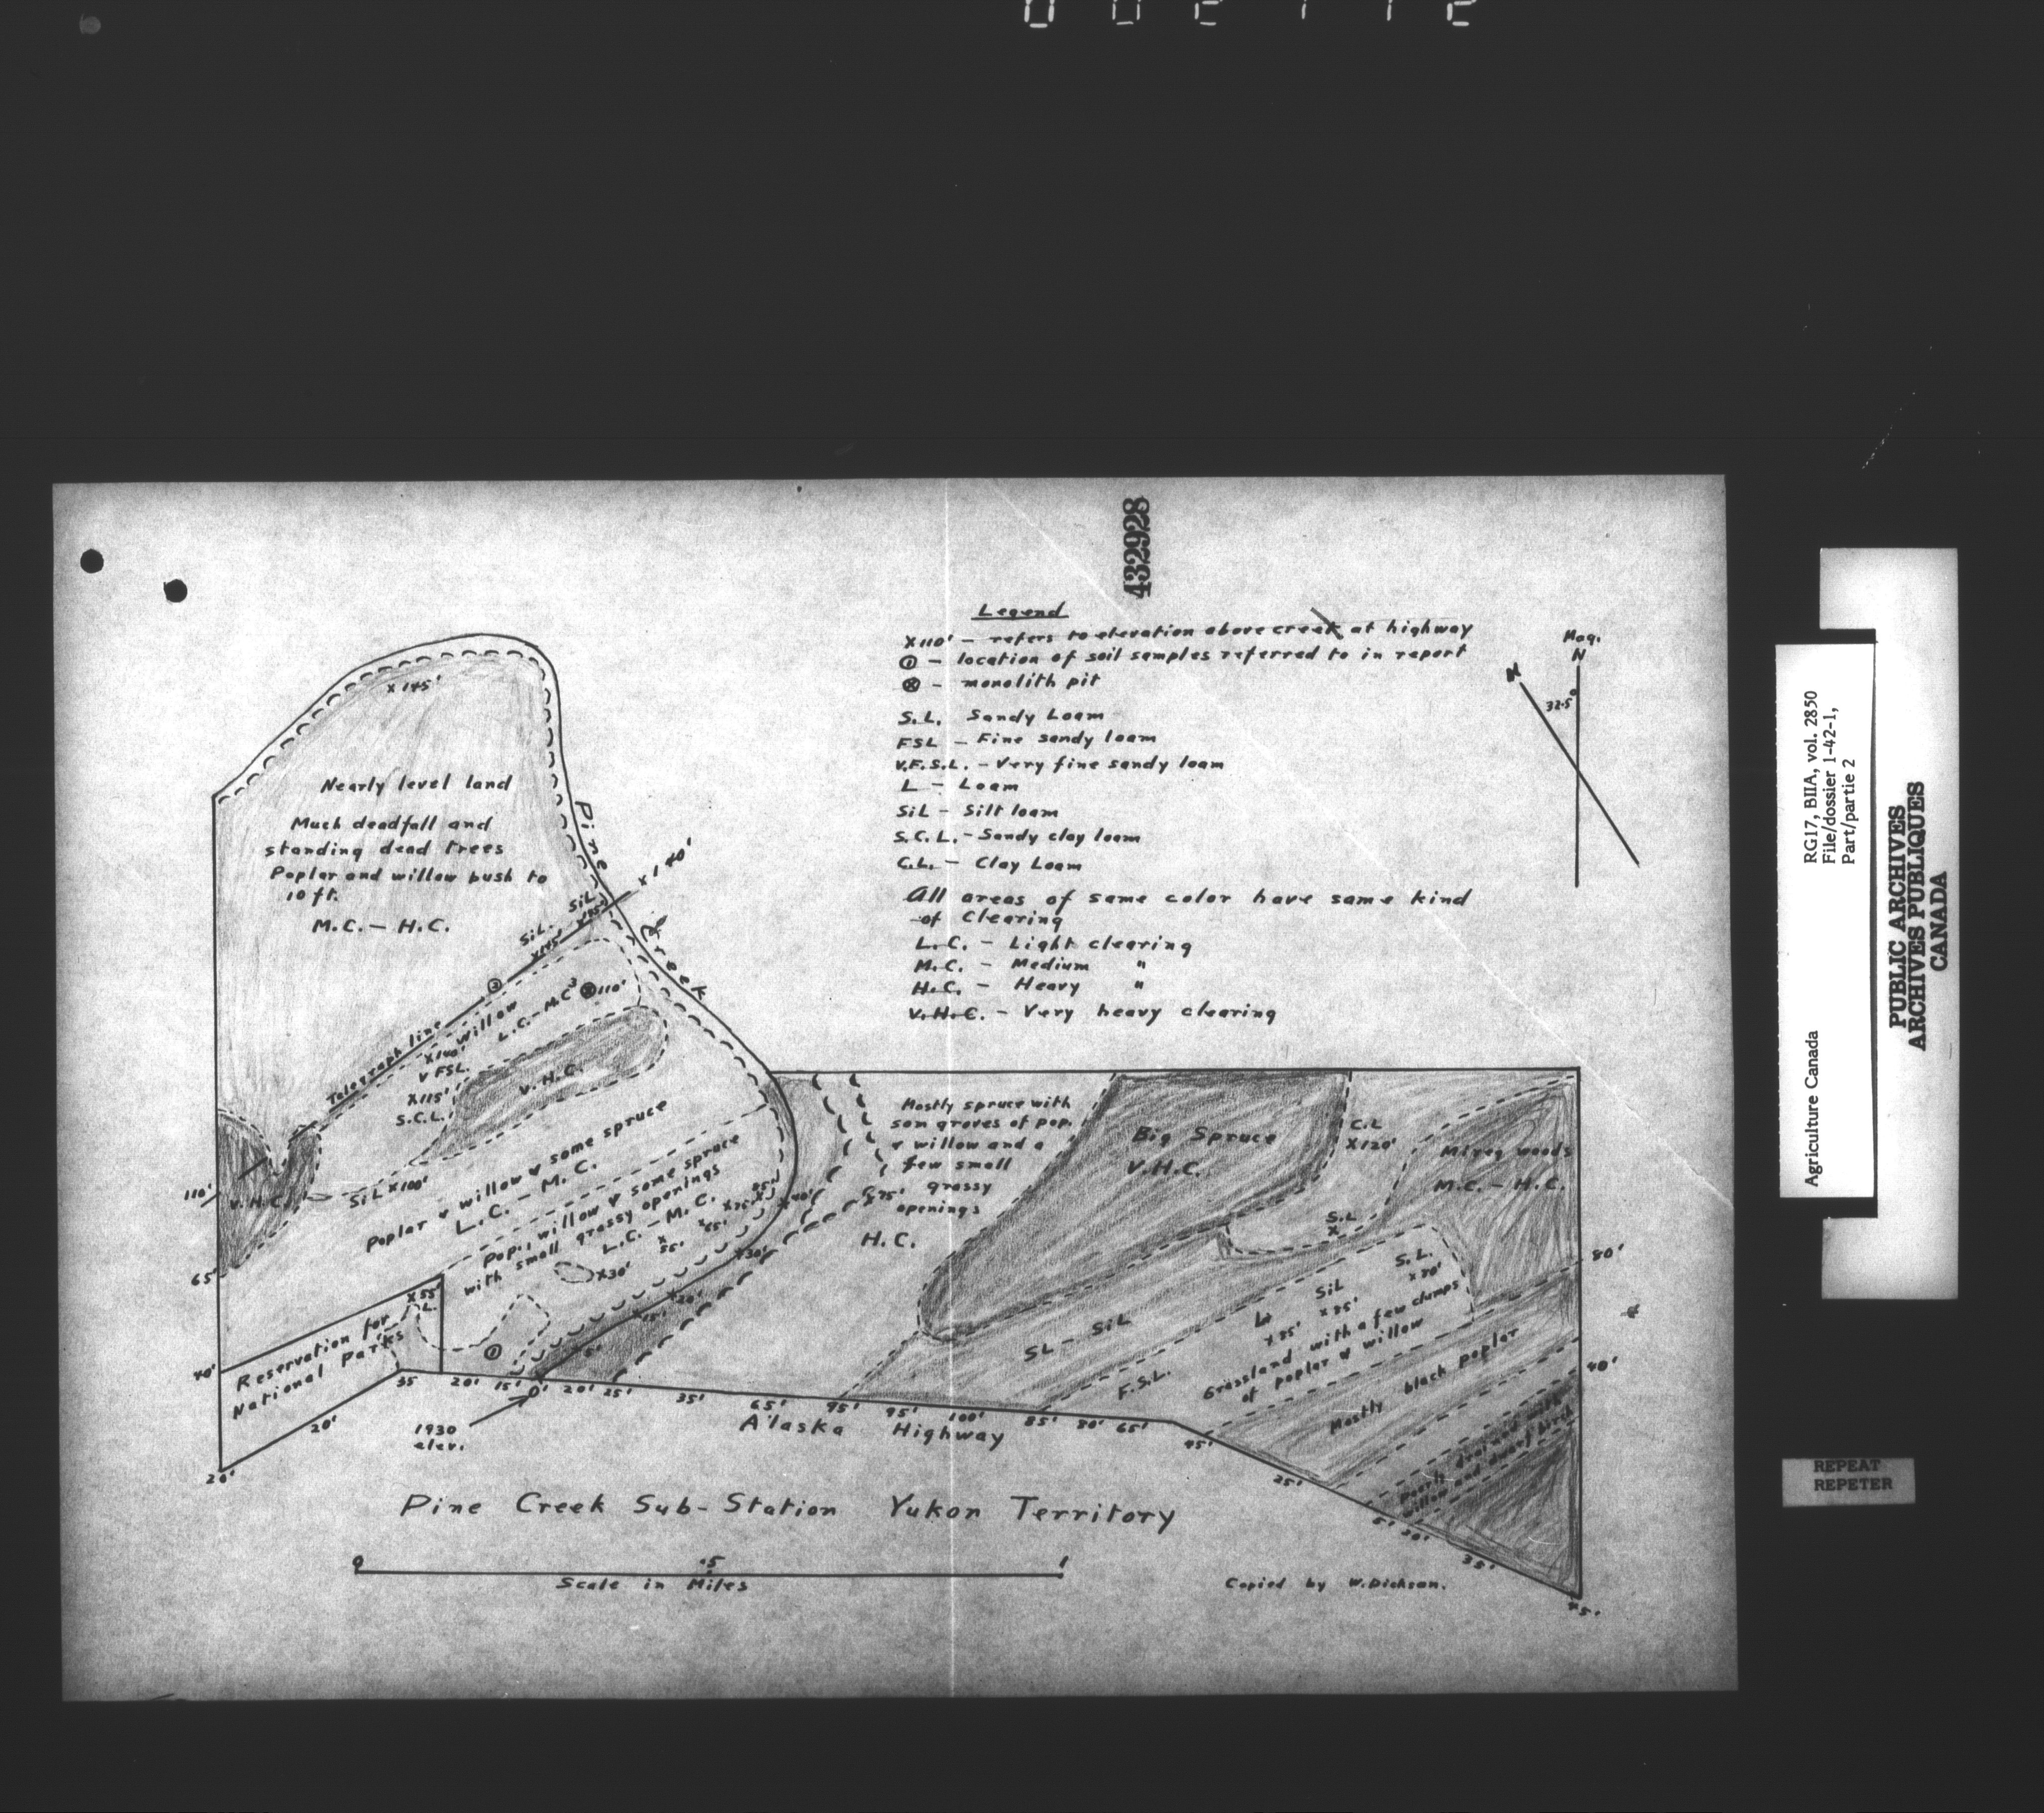 002112
432928
Legend
x110' - refers to elevation above creek at highway
① - location of soil samples referred to in report
⊗ - monolith pit
S.L. Sandy Loam
FSL - Fine sandy loam
V.F.S.L. - Very fine sandy loam
L - Loam
SiL - Silt loam
S.C.L. - Sandy clay loam
C.L. - Clay Loam
All areas of same color have same kind
of Clearing
L.C. - Light clearing
M.C. - Medium "
H.C. - Heavy "
V.H.C. - Very heavy clearing
Mag.
N
N
32.5°
x145'
Nearly level land
Much deadfall and
standing dead trees
Poplar and willow bush to
10 ft.
M.C. - H.C.
Pine Creek
x140'
SiL
SiL.
x145'
③
Telegraph line
willow
L.C. - M.C.
⊗110'
x140'
V FSL.
x115'
S.C.L.
V.H.C.
110'
V.H.C.
SiL x100'
Poplar & willow & some spruce
L.C. - M.C.
pop., willow & some spruce
with small grassy openings
L.C. - M.C.
x75'
x65'
x
55'
85'
x40'
x30'
x30'
x20'
x15'
5'
65'
x55'
L.
40'
Reservation for
National Parks
①
20'
20'
35
20'
15'
0'
20'
25'
35'
65'
95'
95'
100'
85'
80'
65'
45'
25'
5'
20'
35'
45'
1930
elev.
Alaska Highway
Mostly spruce with
som groves of pop.
& willow and a
few small
grassy
openings
75'
H.C.
Big Spruce
V.H.C.
C.L
x120'
Mixed woods
M.C. - H.C.
S.L
x
80'
S.L.
x70'
SiL
x75'
L
x85'
Grassland with a few clumps
of poplar & willow
SL - SiL
F.S.L.
Mostly black poplar
40'
willow and dwarf birch
Pine Creek Sub-Station Yukon Territory
0 .5 1
Scale in Miles
Copied by W. Dickson.
Agriculture Canada
RG17, BIIA, vol. 2850
File/dossier 1-42-1,
Part/partie 2
PUBLIC ARCHIVES
ARCHIVES PUBLIQUES
CANADA
REPEAT
REPETER